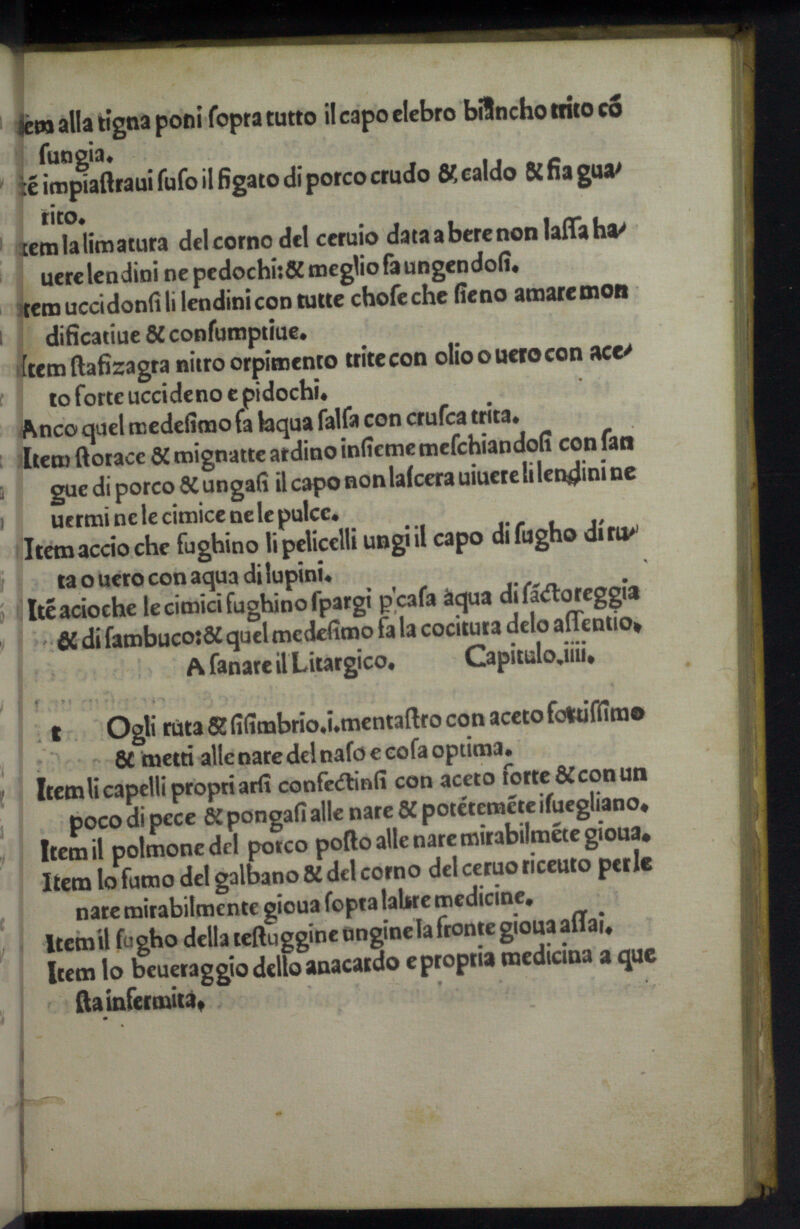 Item alla tigna poni ſopra tutto il capo elebro biãncho trito cõ
fungia.
Itẽ impiaſtraui ſuſo il figato di porco crudo & caldo & fia gua/
rito.
Item la limatura del corno del ceruio data a bere non laſſa ha/
uere lendini ne pedochi: & meglio fa ungendoſi.
Item uccidonſi li lendini con tutte choſe che ſieno amare mon
dificatiue & conſumptiue.
Item ſtafizagra nitro orpimento trite con olio o uero con ace/
to forte uccideno e pidochi.
Anco quel medeſimo fa laqua ſalſa con cruſca trita.
Item ſtorace & mignatte ardino inſieme meſchiandoſi con ſan
gue di porco & ungaſi il capo non laſcera uiuere li lendini ne
uermi ne le cimice ne le pulce.
Item accio che fughino li pelicelli ungi il capo di ſugho di ru/
ta o uero con aqua di lupini.
Itẽ acioche le cimici fughino ſpargi p caſa aqua di ſactoreggia
& di ſambuco: & quel medeſimo fa la cocitura delo aſſentio.
A ſanare il Litargico. Capitulo.iiii.
t Ogli ruta & ſiſimbrio.i.mentaſtro con aceto fortiſſimo
& metti alle nare del naſo e coſa optima.
Item li capelli propri arſi confectinſi con aceto forte & con un
poco di pece & pongaſi alle nare & potẽtemẽte iſuegliano.
Item il polmone del porco poſto alle nare mirabilmẽte gioua.
Item lo fumo del galbano & del corno del ceruo riceuto per le
nare mirabilmente gioua ſopra laltre medicine.
Item il ſugho della teſtuggine unginela fronte gioua aſſai.
Item lo beueraggio dello anacardo e propria medicina a que
ſta infermita.